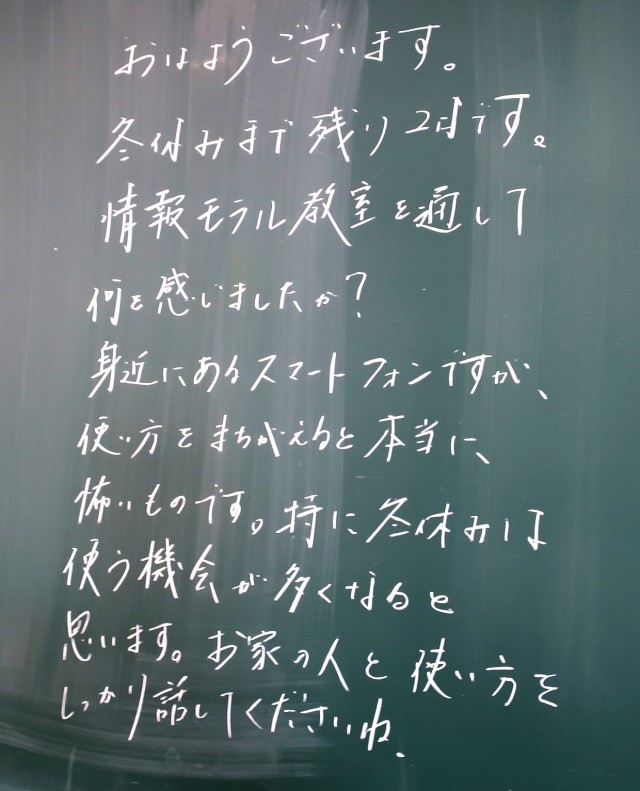 おはようございます。
冬休みまで残り2日です。
情報モラル教室を通して
何を感じましたか?
身近にあるスマートフォンですが、
使い方をまちがえると本当に、
怖いものです。特に冬休みは
使う機会が多くなると
思います。お家の人と使い方を
しっかり話してくださいね。